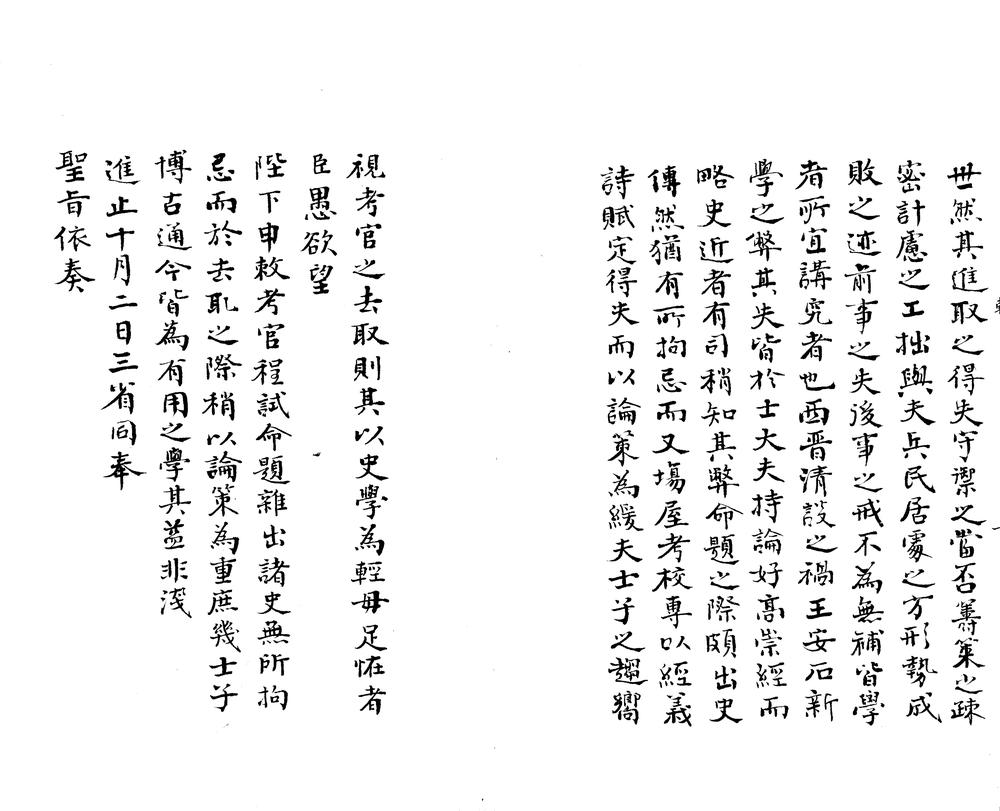 世然其進取之得失守禦之當否籌策之疎
密計慮之工拙與夫兵民居處之方形勢成
敗之迹前事之失後事之戒不為無補皆學
者所宜講究者也西晋清設之禍王安石新
學之弊其失皆於士大夫持論好高崇經而
略史近者有司稍知其弊命題之際頗出史
傳然猶有所拘忌而又場屋考校專以經義
詩賦定得失而以論策為緩夫士子之趨嚮
視考官之去取則其以史學為輕毋足恠者
臣愚欲望
陛下申敕考官程試命題雜出諸史無所拘
忌而於去取之際稍以論策為重庶幾士子
博古通今皆為有用之學其益非淺
進止十月二日三省同奉
聖旨依奏